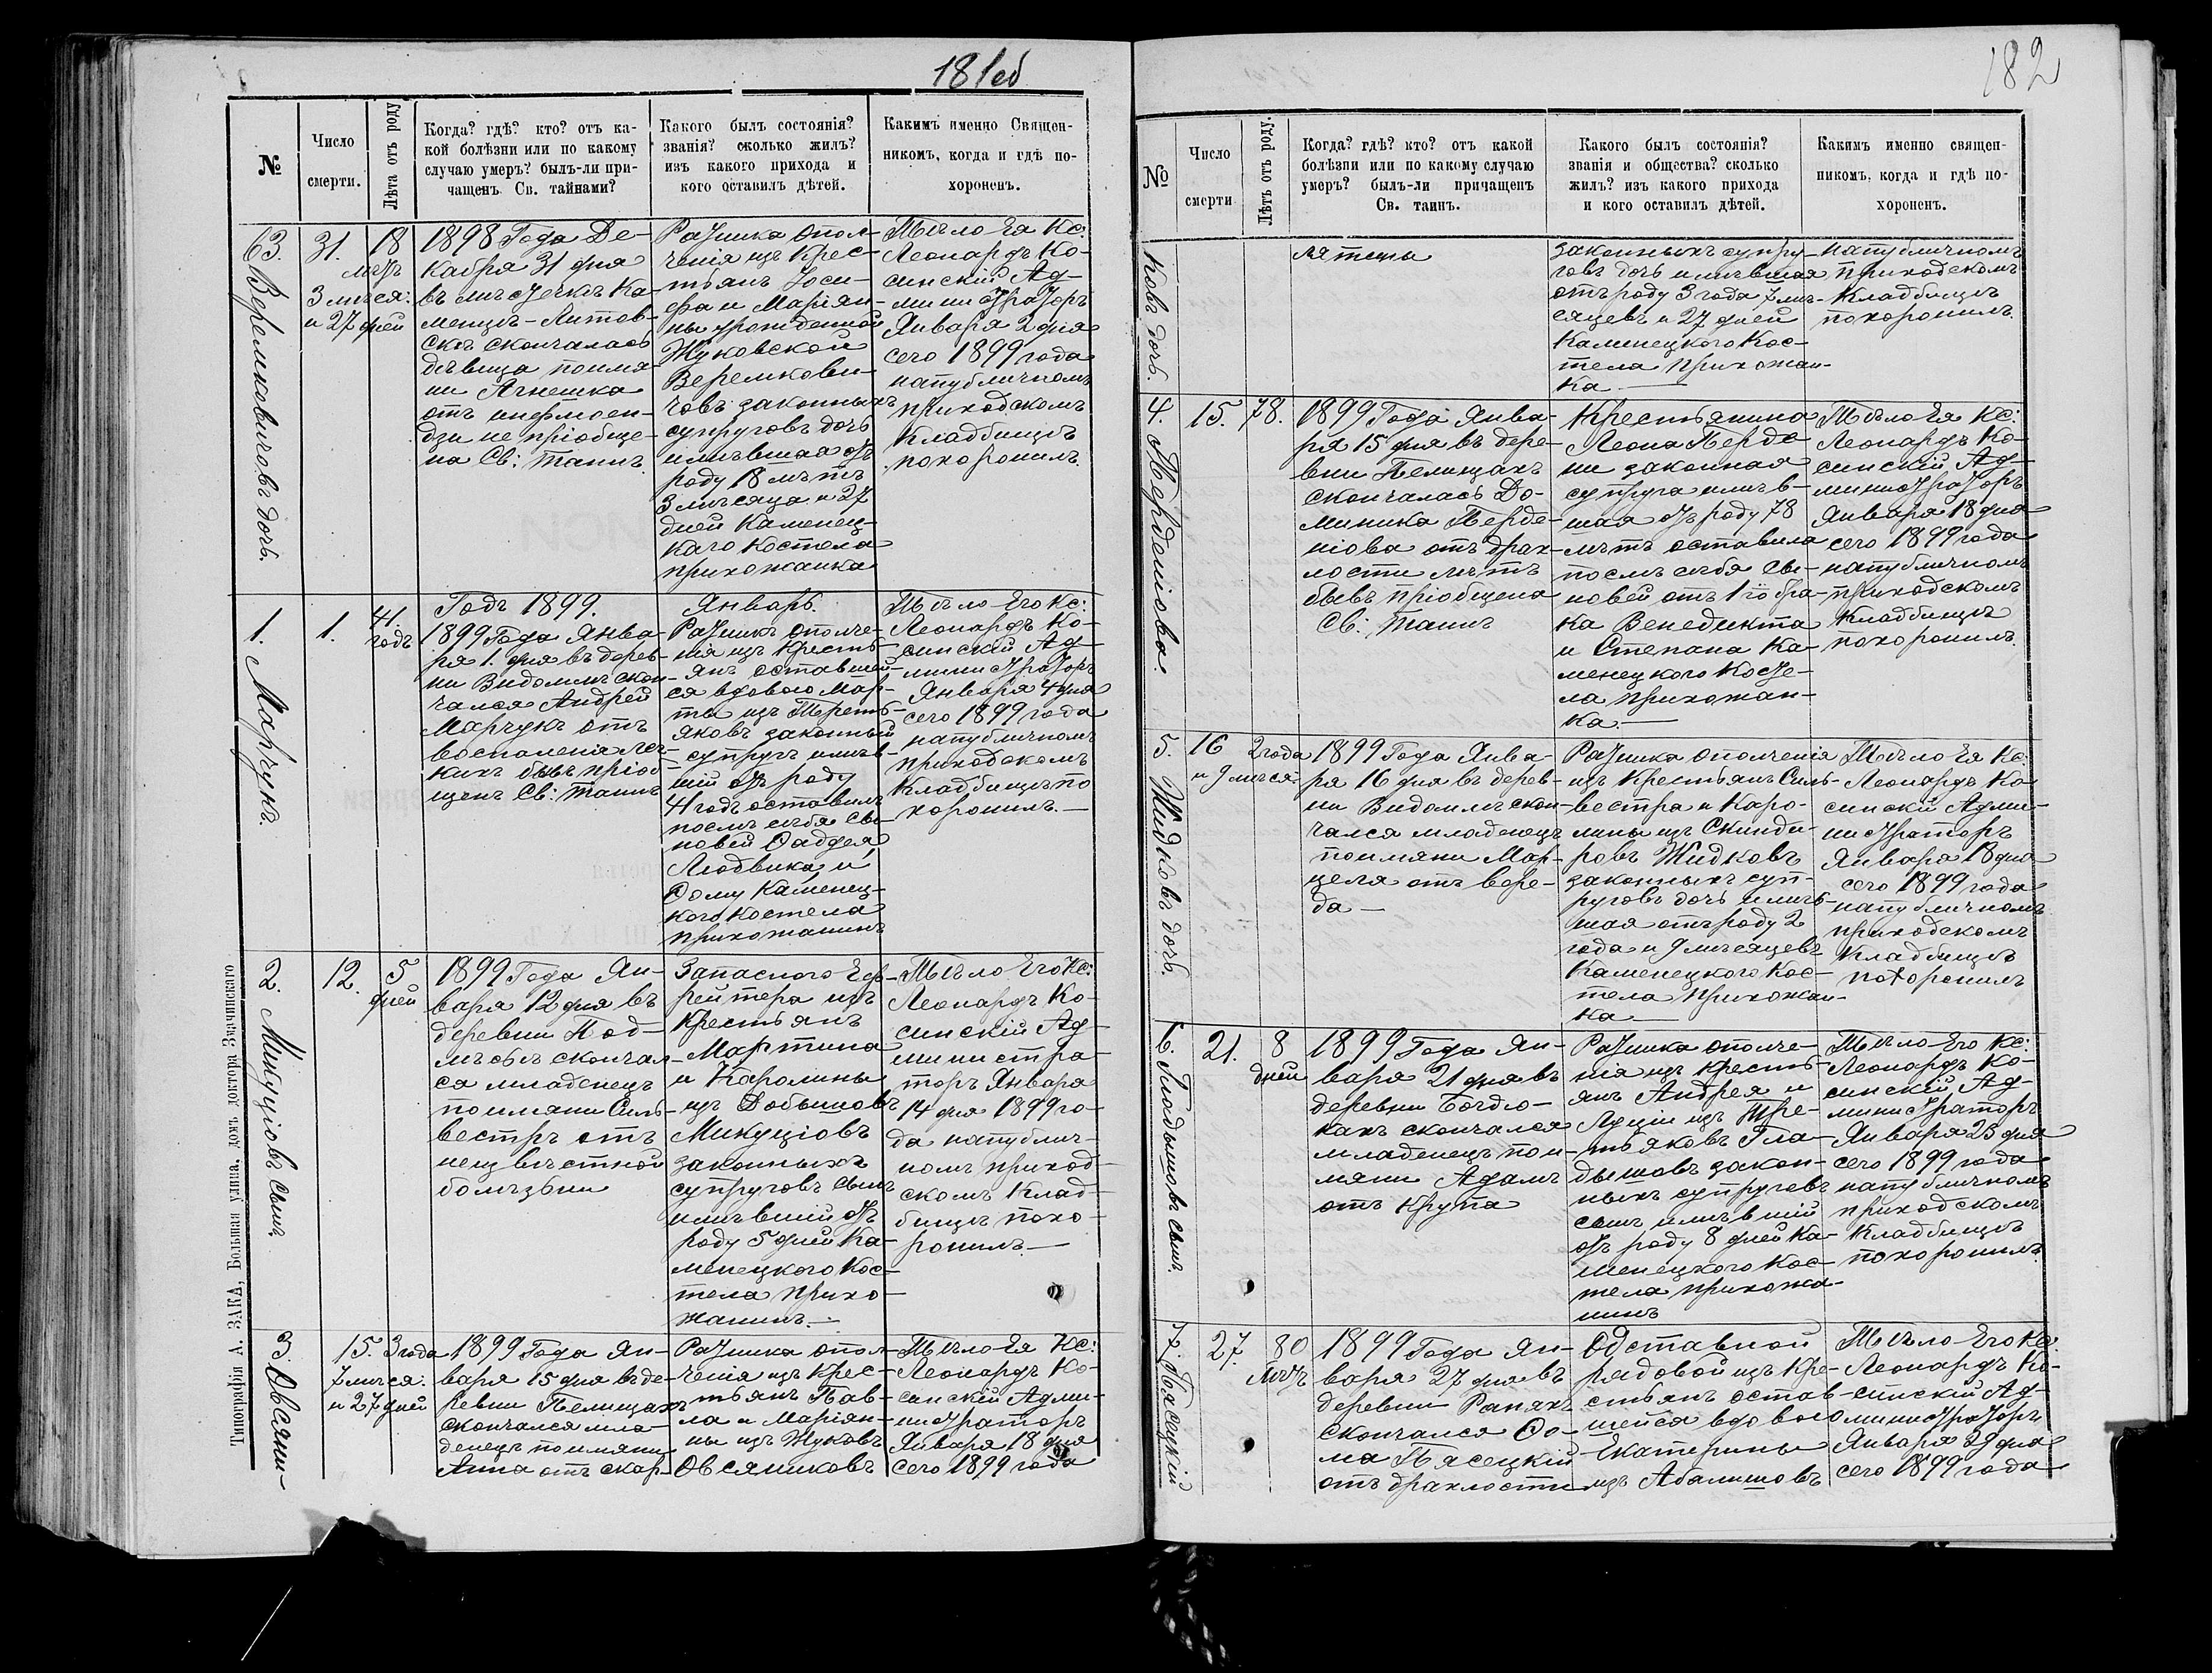 181об
№
Число
смерти.
Лѣта отъ роду
Когда? гдѣ? кто? отъ ка-
кой болѣзни или по какому
случаю умеръ? былъ-ли при-
чащенъ Св. тайнами?
Какого былъ состоянія?
званія? сколько жилъ?
изъ какого прихода и
кого оставилъ дѣтей.
Какимъ именно Священ-
никомъ, когда и гдѣ по-
хороненъ.
63.
Веремковичовъ дочь.
31.
18
лѣтъ
3 мѣся:
и 27 дней
1898 Года Де-
кабря 31 дня
въ мѣстечкѣ Ка-
менцѣ-Литов-
скѣ скончалась
дѣвица поимя-
ни Агнешка
отъ инфлюен-
дзи не пріобще-
на Св: Таинъ.
Ратника Опол-
ченія изъ Крес-
тьянъ Іоси-
фа и Маріян-
ны урожденной
Жуковской
Веремкови-
човъ законныхъ
супруговъ дочь
имѣвшая отъ
роду 18 лѣтъ
3 мѣсяца и 27
дней Каменец-
каго костела
прихожанка
Тѣло Ея Кс:
Леонардъ Ко-
синскій Ад-
министраторъ
Января 2 дня
сего 1899 года
напубличномъ
приходскомъ
Кладбищѣ
похоронилъ.
1.
Марчукъ.
1.
41.
годъ
Годъ 1899.
1899 Года Янва-
ря 1. дня въ дерев-
ни Видомлѣ скон-
чался Андрей
Марчукъ отъ
воспаленія лег-
кихъ бывъ пріоб-
щенъ Св: Таинъ
Январь.
Ратникъ ополче-
нія изъ крестъ-
янъ оставшей-
ся вдовою Мар-
ты изъ Треть-
яковъ законный
супругъ имѣв-
шій отъ роду
41 годъ оставилъ
послѣ себя сы-
новей Фаддея
Людвика и
Фому Каменец-
кого костела
прихожанинъ
Тѣло Его Кс:
Леонардъ Ко-
синскій Ад-
министраторъ
Января 4 дня
сего 1899 года
напубличномъ
приходскомъ
Кладбищѣ по
хоронилъ.—
2.
Микуціовъ сынъ.
12.
5
дней
1899 Года Ян-
варя 12 дня въ
деревни Под-
лѣсьѣ скончал-
ся младенецъ
поимяни Силь-
вестръ отъ
неизвѣстной
болѣзьни
Запасного Еф-
рейтера изъ
Крестьянъ
Мартина
и Каролины
изъ Добыновъ
Микуціовъ
законныхъ
супруговъ сынъ
имѣвшій отъ
роду 5 дней Ка-
менецкого Кос-
тела прихо-
жанинъ.—
Тѣло Его Кс:
Леонардъ Ко-
синскій Ад-
министра-
торъ Января
14 дня 1899 го-
да напублич-
номъ приход-
скомъ Клад-
бищѣ похо-
ронилъ—
3.
Овсяни-
15.
3 года
7 мѣся:
и 27 дней
1899 Года Ян-
варя 15 дня въ де-
ревни Пелищахъ
скончался мла-
денецъ поимяни
Анна отъ скар-
Ратника опол-
ченія изъ Крес-
тьянъ Пав-
ла и Маріян-
ны изъ Жуковъ
Овсяниковъ
Тѣло Ея Кс:
Леонардъ Ко-
синскій Адми-
нистраторъ
Января 18 дня
сего 1899 года
Типографія А. ЗАКА, Большая улица, домъ доктора Значинскаго
182
№
Число
смерти
Лѣтъ отъ роду.
Когда? гдѣ? кто? отъ какой
болѣзни или по какому случаю
умеръ? былъ-ли причащенъ
Св. таинъ.
Какого былъ состоянія?
званія и общества? сколько
жилъ? изъ какого прихода
и кого оставилъ дѣтей.
Какимъ именно священ-
никомъ, когда и гдѣ по-
хороненъ.
ковъ дочь.
лятины
законныхъ супру-
говъ дочь имѣвшая
отъ роду 3 года 7 мѣ-
сяцевъ и 27 дней
Каменецкого Кос-
тела прихожан-
ка—
напубличномъ
приходскомъ
Кладбищѣ
похоронилъ.
4.
Перденіова.
15.
78.
1899 Года Янва-
ря 15 дня въ дере-
вни Пелищахъ
скончалась До-
миника Перде-
ніова отъ драх-
лости лѣтъ
бывъ пріобщена
Св: Таинъ
Крестьянина
Леона Перде
ни законная
супруга имѣв-
шая отъ роду 78
лѣтъ оставила
послѣ себя сы-
новей отъ 1го бра-
ка Венедикта
и Степана Ка-
менецкого Косте-
ла прихожан-
ка.—
Тѣло Ея Кс:
Леонардъ Ко-
синскій Ад-
министраторъ
Января 18 дня
сего 1899 года
напубличномъ
приходскомъ
Кладбищѣ
похоронилъ.
5.
Жидковъ дочь.
16
2 года
и 9 мѣся
1899 Года Янва-
ря 16 дня въ дерев-
ни Видомлѣ скон-
чался младенецъ
поимяни Мар-
целя отъ вере-
да—
Ратника ополченія
изъ Крестьянъ Силь-
вестра и Каро-
лины изъ Скинде-
ровъ Жидковъ
законныхъ суп-
руговъ дочь имѣв-
шая отъ роду 2
года и 9 мѣсяцевъ
Каменецкого Кос-
тела прихожан-
ка—
Тѣло Ея Кс:
Леонардъ Ко
синскій Адми-
нистраторъ
Января 18 дня
сего 1899 года
напубличномъ
приходскомъ
Кладбищѣ
похоронилъ
6.
Гладышовъ сынъ.
21.
8
дней
1899 Года Ян-
варя 21 дня въ
деревни Богдю-
кахъ скончался
младенецъ пои-
мяни Адамъ
отъ крупа
Ратника ополче-
нія изъ кресть-
янъ Андрея и
Луціи изъ Тре-
тьяковъ Гла-
дышовъ закон-
ныхъ супруговъ
сынъ имѣвшій
отъ роду 8 дней Ка-
менецкого Кос-
тела прихожа-
нинъ
Тѣло Его Кс:
Леонардъ Ко-
синскій Ад-
министраторъ
Января 23 дня
сего 1899 года
напубличномъ
приходскомъ
Кладбищѣ
похоронилъ.
7.
Пясецкій
27.
80
лѣтъ
1899 Года Ян-
варя 27 дня въ
деревни Ратяхъ
скончался Фо-
ма Пясецкій
отъ драхлости
Одставной
рядовой изъ кре-
стьянъ остав-
шейся вдовою
Екатерины
изъ Абалишовъ
Тѣло Его Кс:
Леонардъ Ко-
синскій Ад-
министраторъ
Января 29 дня
сего 1899 года